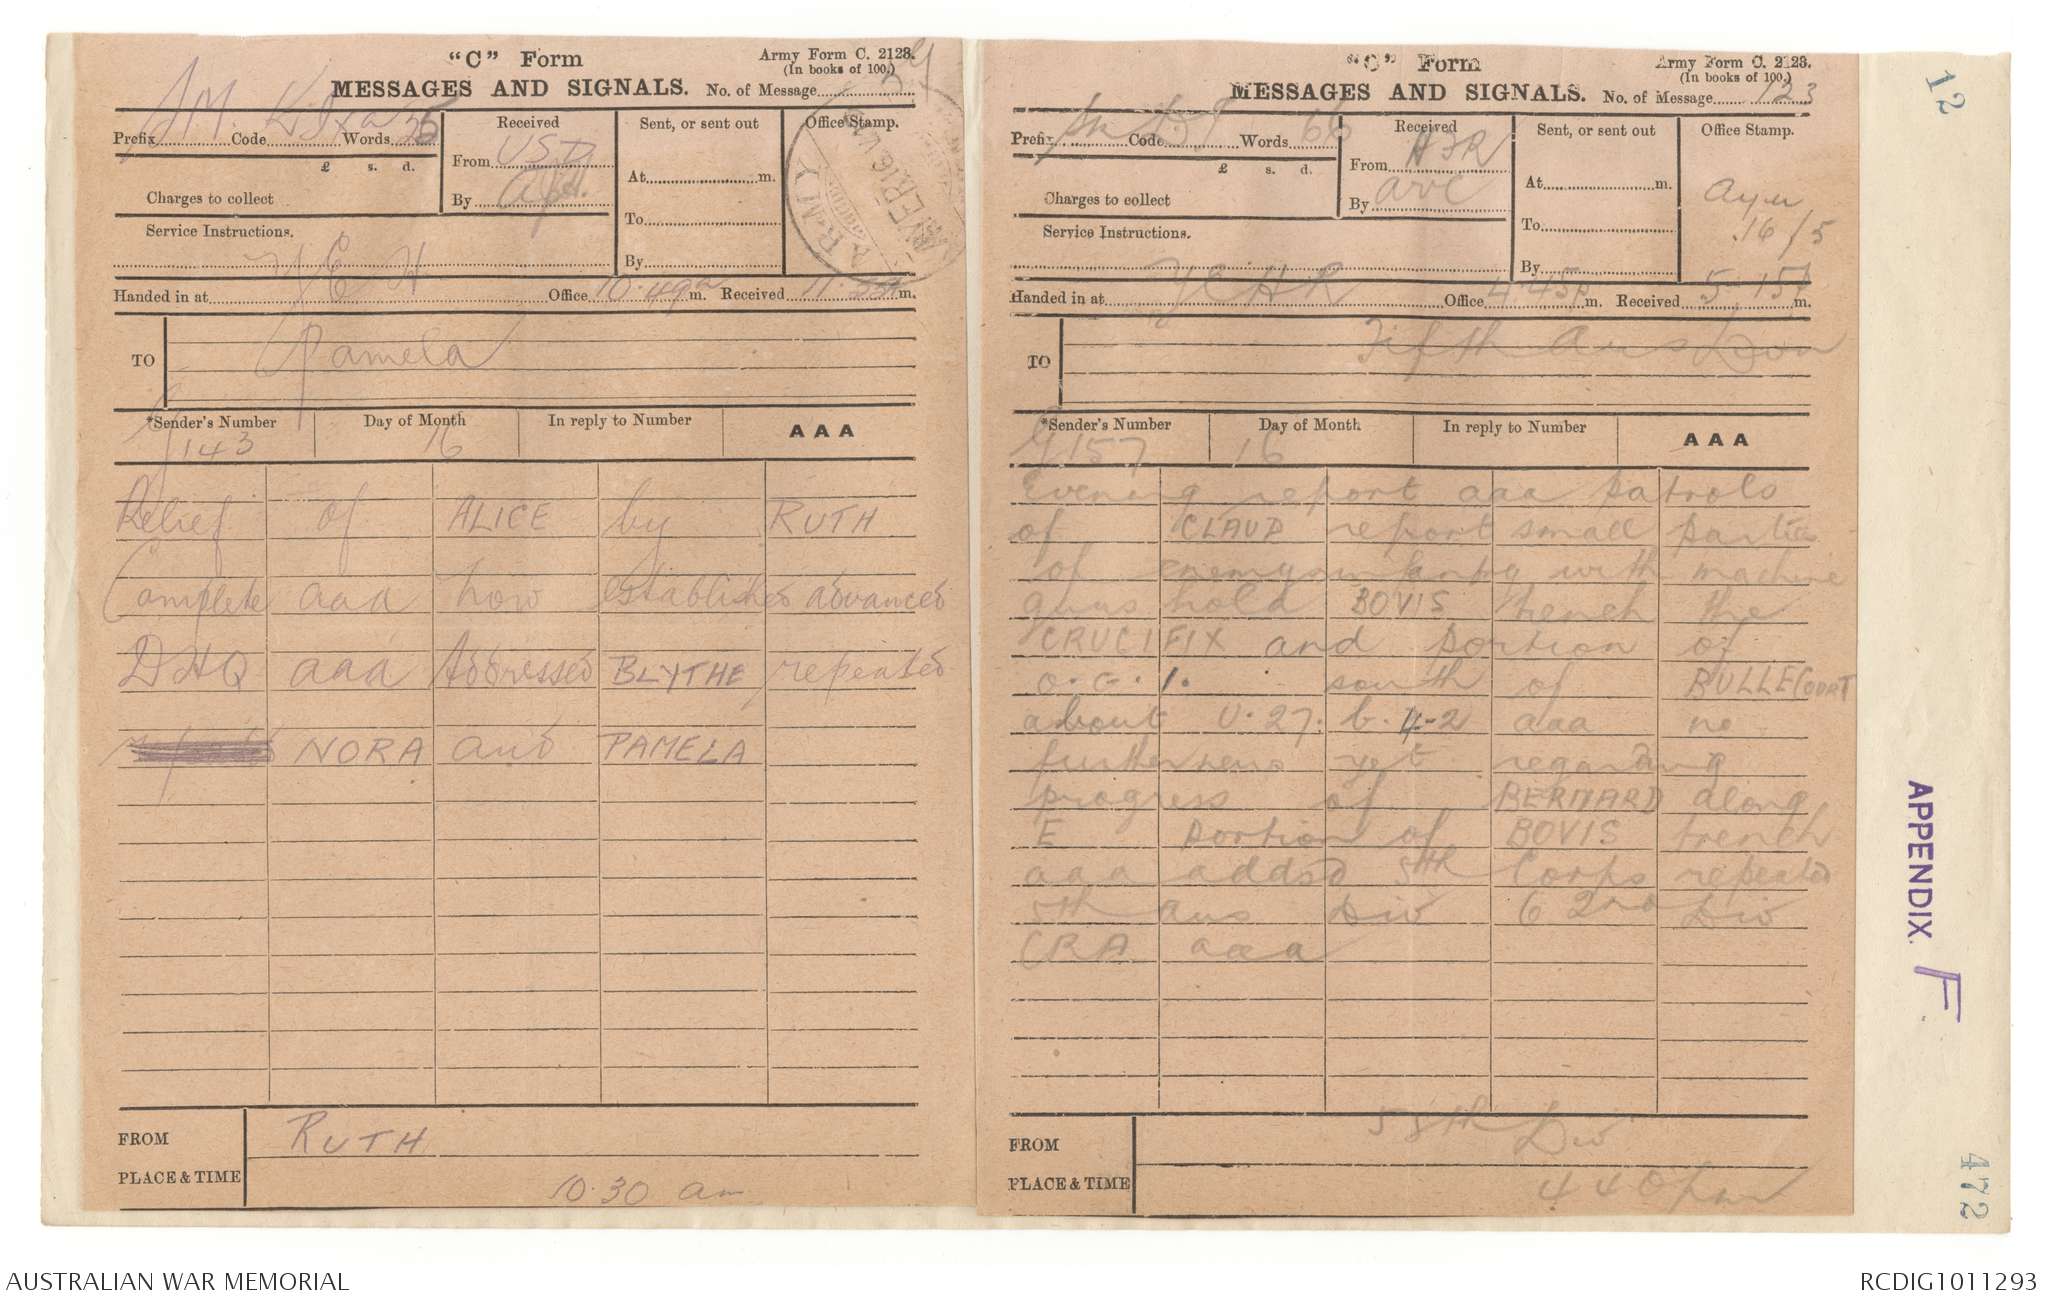 "C" Form
Army Form C. 2123.
(In books of 100.)
MESSAGES AND SIGNALS. No. of Message
Prefix SM Code Words 25
Received
From USD
By
Sent, or sent out
At m.
To
By
Office Stamp.
ARMY
£ s. d.
Charges to collect
Service Instructions.
YEH
Handed in at Office 10.49a m. Received 11. m.
TO Pamela
*Sender's Number
Day of Month
In reply to Number
AAA
G143 16
Relief of ALICE by RUTH
Complete aaa how established advanced
DHQ aaa Addressed BLYTHE repeated
NORA and PAMELA
FROM RUTH
PLACE & TIME 10.30 am
"C" Form
Army Form C. 2123.
(In books of 100.)
MESSAGES AND SIGNALS. No. of Message 123
Prefix Sm Code Words 66
Received
From
By avc
Sent, or sent out
At m.
To
By
Office Stamp.
16/5
£ s. d.
Charges to collect
Service Instructions.
YEHR
Handed in at Office 4.45p m. Received 5.15p m.
TO Fifth Aus Divn
*Sender's Number
Day of Month
In reply to Number
AAA
G157 16
Evening report aaa patrols
of CLAUD report small parties
of enemy infantry with machine
guns hold BOVIS trench the
CRUCIFIX and portion of
O.G.1. south of BULLECOURT
about U.27.b.4-2 aaa no
further news yet regarding
progress of BERNARD along
E portion of BOVIS trench
aaa addsd 5th Corps repeated
5th aus Div 62nd Div
CRA aaa
FROM 58th Div
PLACE & TIME 4 40 pm
12
APPENDIX. F
472
AUSTRALIAN WAR MEMORIAL
RCDIG1011293